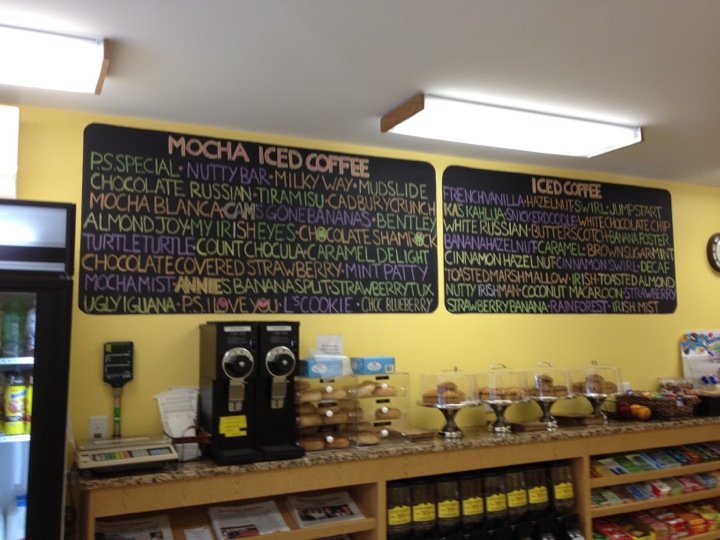 MOCHA ICED COFFEE
P.S. SPECIAL • NUTTY BAR • MILKY WAY • MUDSLIDE
CHOCOLATE RUSSIAN • TIRAMISU • CADBURY CRUNCH
MOCHA BLANCA • CAM'S GONE BANANAS • BENTLEY
ALMOND JOY • MY IRISH EYES • CHOCOLATE SHAMROCK
TURTLE TURTLE • COUNT CHOCULA • CARAMEL DELIGHT
CHOCOLATE COVERED STRAWBERRY • MINT PATTY
MOCHA MIST • ANNIE'S BANANA SPLIT • STRAWBERRY TUX
UGLY IGUANA • P.S. I LOVE YOU • L'S COOKIE • CHOC BLUEBERRY
ICED COFFEE
FRENCH VANILLA • HAZELNUT SWIRL • JUMPSTART
KA'S KAHLUA • SNICKERDOODLE • WHITE CHOCOLATE CHIP
WHITE RUSSIAN • BUTTERSCOTCH • BANANA FOSTER
BANANA HAZELNUT • CARAMEL • BROWN SUGAR MINT
CINNAMON HAZELNUT • CINNAMON SWIRL • DECAF
TOASTED MARSHMALLOW • IRISH • TOASTED ALMOND
NUTTY IRISHMAN • COCONUT MACAROON • STRAWBERRY
STRAWBERRY BANANA • RAINFOREST • IRISH MIST